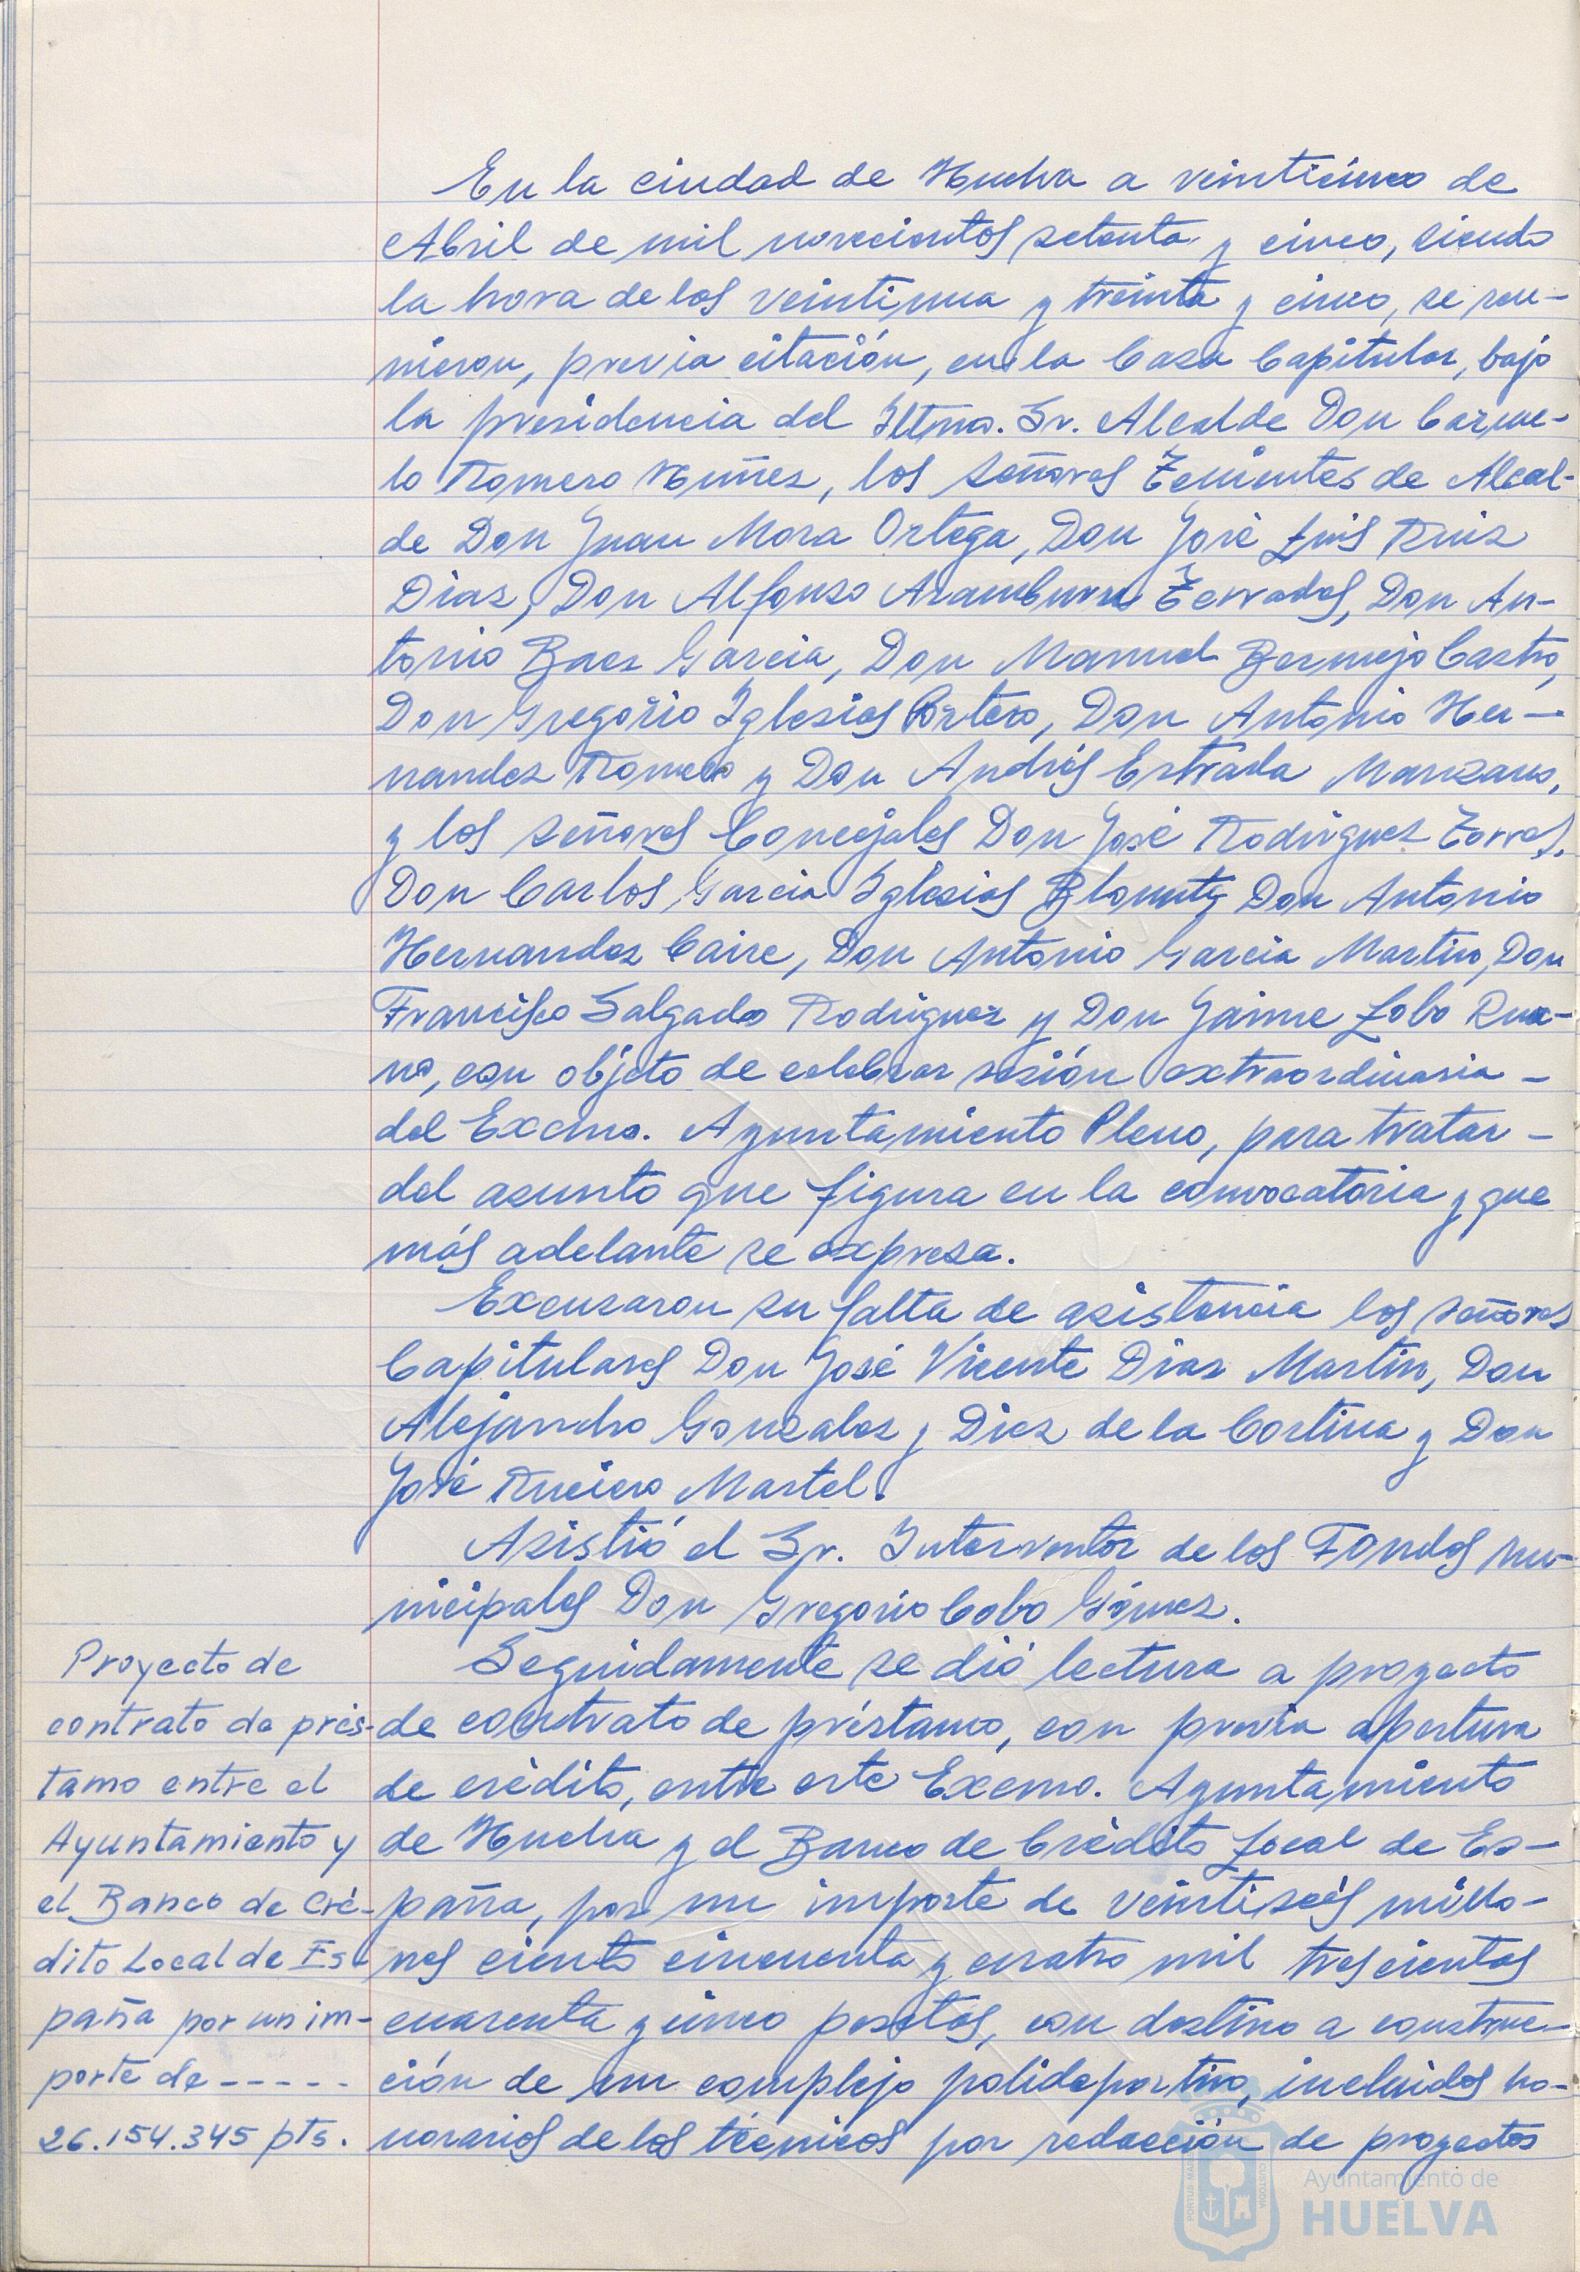 En la ciudad de Huelva a veinticinco de
Abril de mil novecientos setenta y cinco, siendo
la hora de las veintiuna y treinta y cinco, se reu-
nieron, previa citación, en la Casa Capitular, bajo
la presidencia del Iltmo. Sr. Alcalde Don Carme-
lo Romero Nuñez, los señores Tenientes de Alcal-
de Don Juan Mora Ortega, Don José Luis Ruiz
Diaz, Don Alfonso Aramburu Terrades, Don An-
tonio Baez Garcia, Don Manuel Bermejo Castro,
Don Gregorio Iglesias Portero, Don Antonio Her-
nandez Romero y Don Andrés Estrada Manzano,
y los señores Concejales Don José Rodriguez Torres,
Don Carlos Garcia Iglesias Don Antonio
Hernandez Caire, Don Antonio Garcia Martin, Don
Francisco Salgado Rodriguez y Don Jaime Lobo Rua-
no, con objeto de celebrar sesión extraordinaria -
del Excmo. Ayuntamiento Pleno, para tratar -
del asunto que figura en la convocatoria y que
más adelante se expresa.
Excusaron su falta de asistencia los señores
Capitulares Don José Vicente Diaz Martin, Don
Alejandro Gonzalez y Diez de la Cortina y Don
José Ruciero Martel.
Asistió el Sr. Interventor de los Fondos Mu-
nicipales Don Gregorio Cobo Gómez.
Proyecto de
contrato de prés-
tamo entre el
Ayuntamiento y
el Banco de Cré-
dito Local de Es-
paña por un im-
porte de -----
26.154.345 pts.
Seguidamente se dió lectura a proyecto
de contrato de préstamo, con previa apertura
de crédito, entre este Excmo. Ayuntamiento
de Huelva y el Banco de Crédito Local de Es-
paña, por un importe de veintiseis millo-
nes ciento cincuenta y cuatro mil trescientas
cuarenta y cinco pesetas, con destino a construc-
ción de un complejo polideportivo, incluidos ho-
norarios de los técnicos por redacción de proyectos
PORTUS MARIS
CUSTODIA
Ayuntamiento de
HUELVA